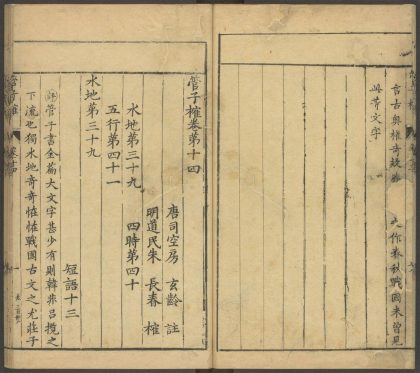 言古奧奇
夫作春秋戰國未曾見
此等文字
管子榷卷第十四
唐司空房 玄齡 註
明道民朱 長春 榷
水地第三十九
四時第四十
五行第四十一
短語十三
水地第三十九
管子書全篇大文字甚少有則韓非呂覽之
下流也獨水地奇奇恠恠戰國古文之尤莊子